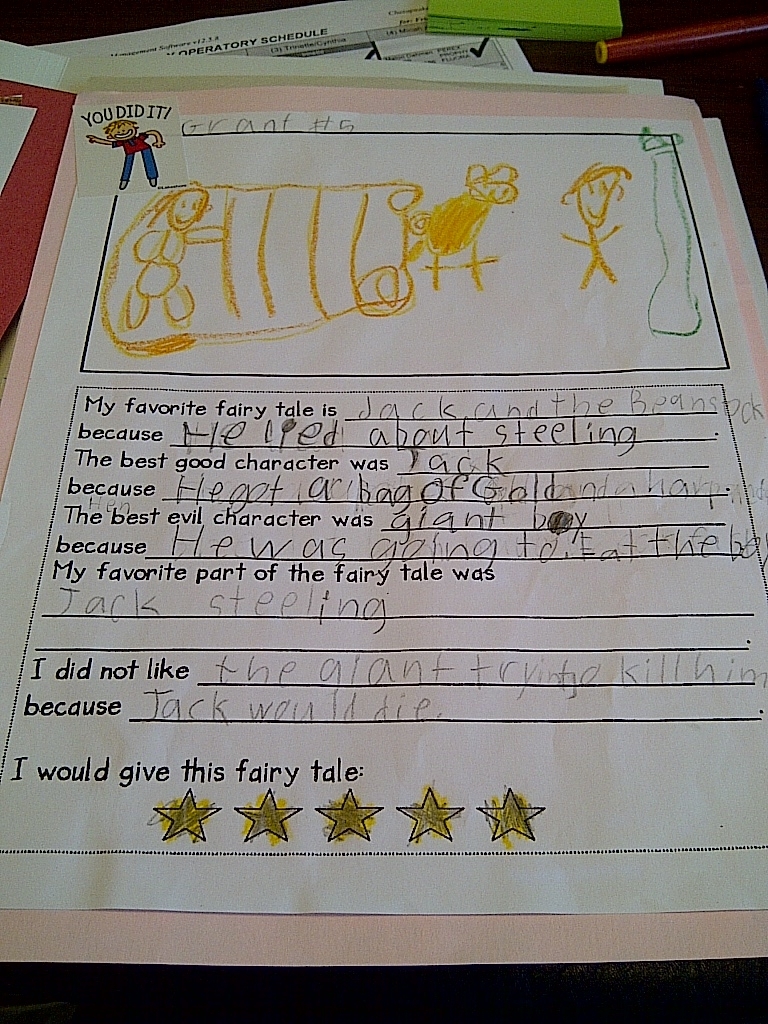 Management Software v12.5.8
Y OPERATORY SCHEDULE
(3) Trinette/Cynthia
YOU DID IT!
Grant #5
My favorite fairy tale is Jack and the Beanstock
because He lied about steeling.
The best good character was Jack
because He got a bag of Gold and a harp and
Hen
The best evil character was giant boy
because He was going to Eat the boy
My favorite part of the fairy tale was
Jack steeling
.
I did not like the giant trying to kill him
because Jack would die.
I would give this fairy tale: